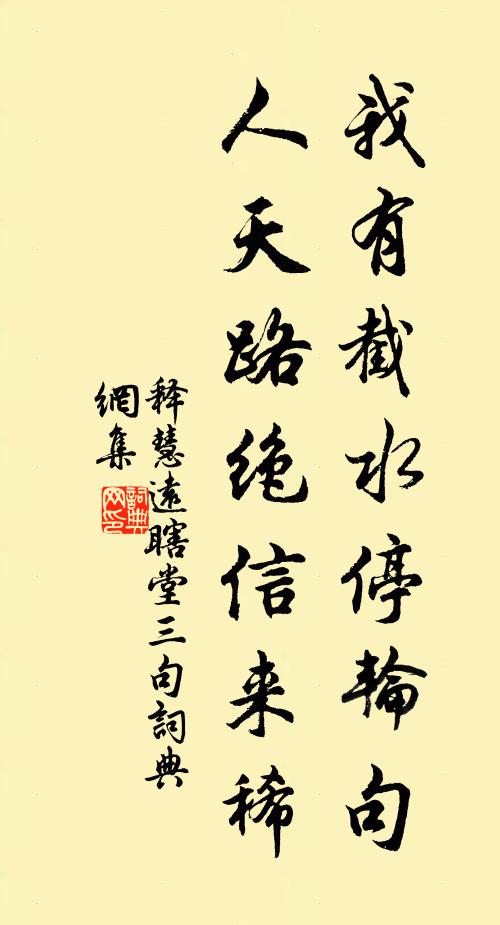 我有截水停輪句
人天路绝信来稀
释慧遠瞎堂三句詞典
網集
詞典網印